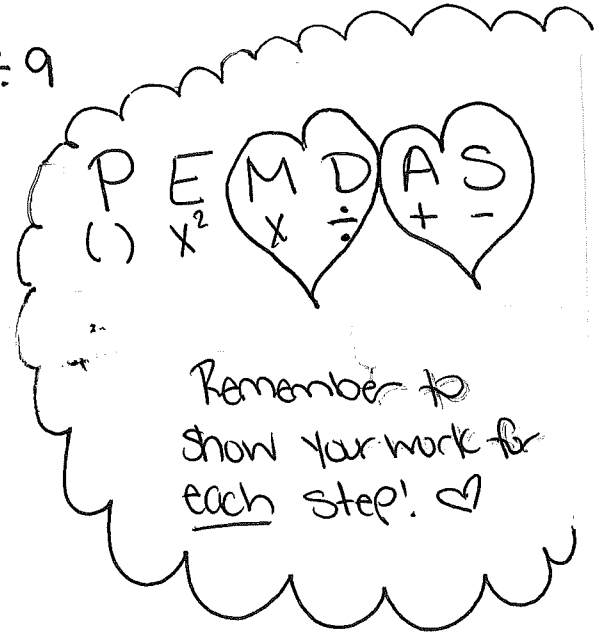 ÷ 9
P E M D A S
( ) x² x ÷ + -
Remember to
show your work for
each step! ♡